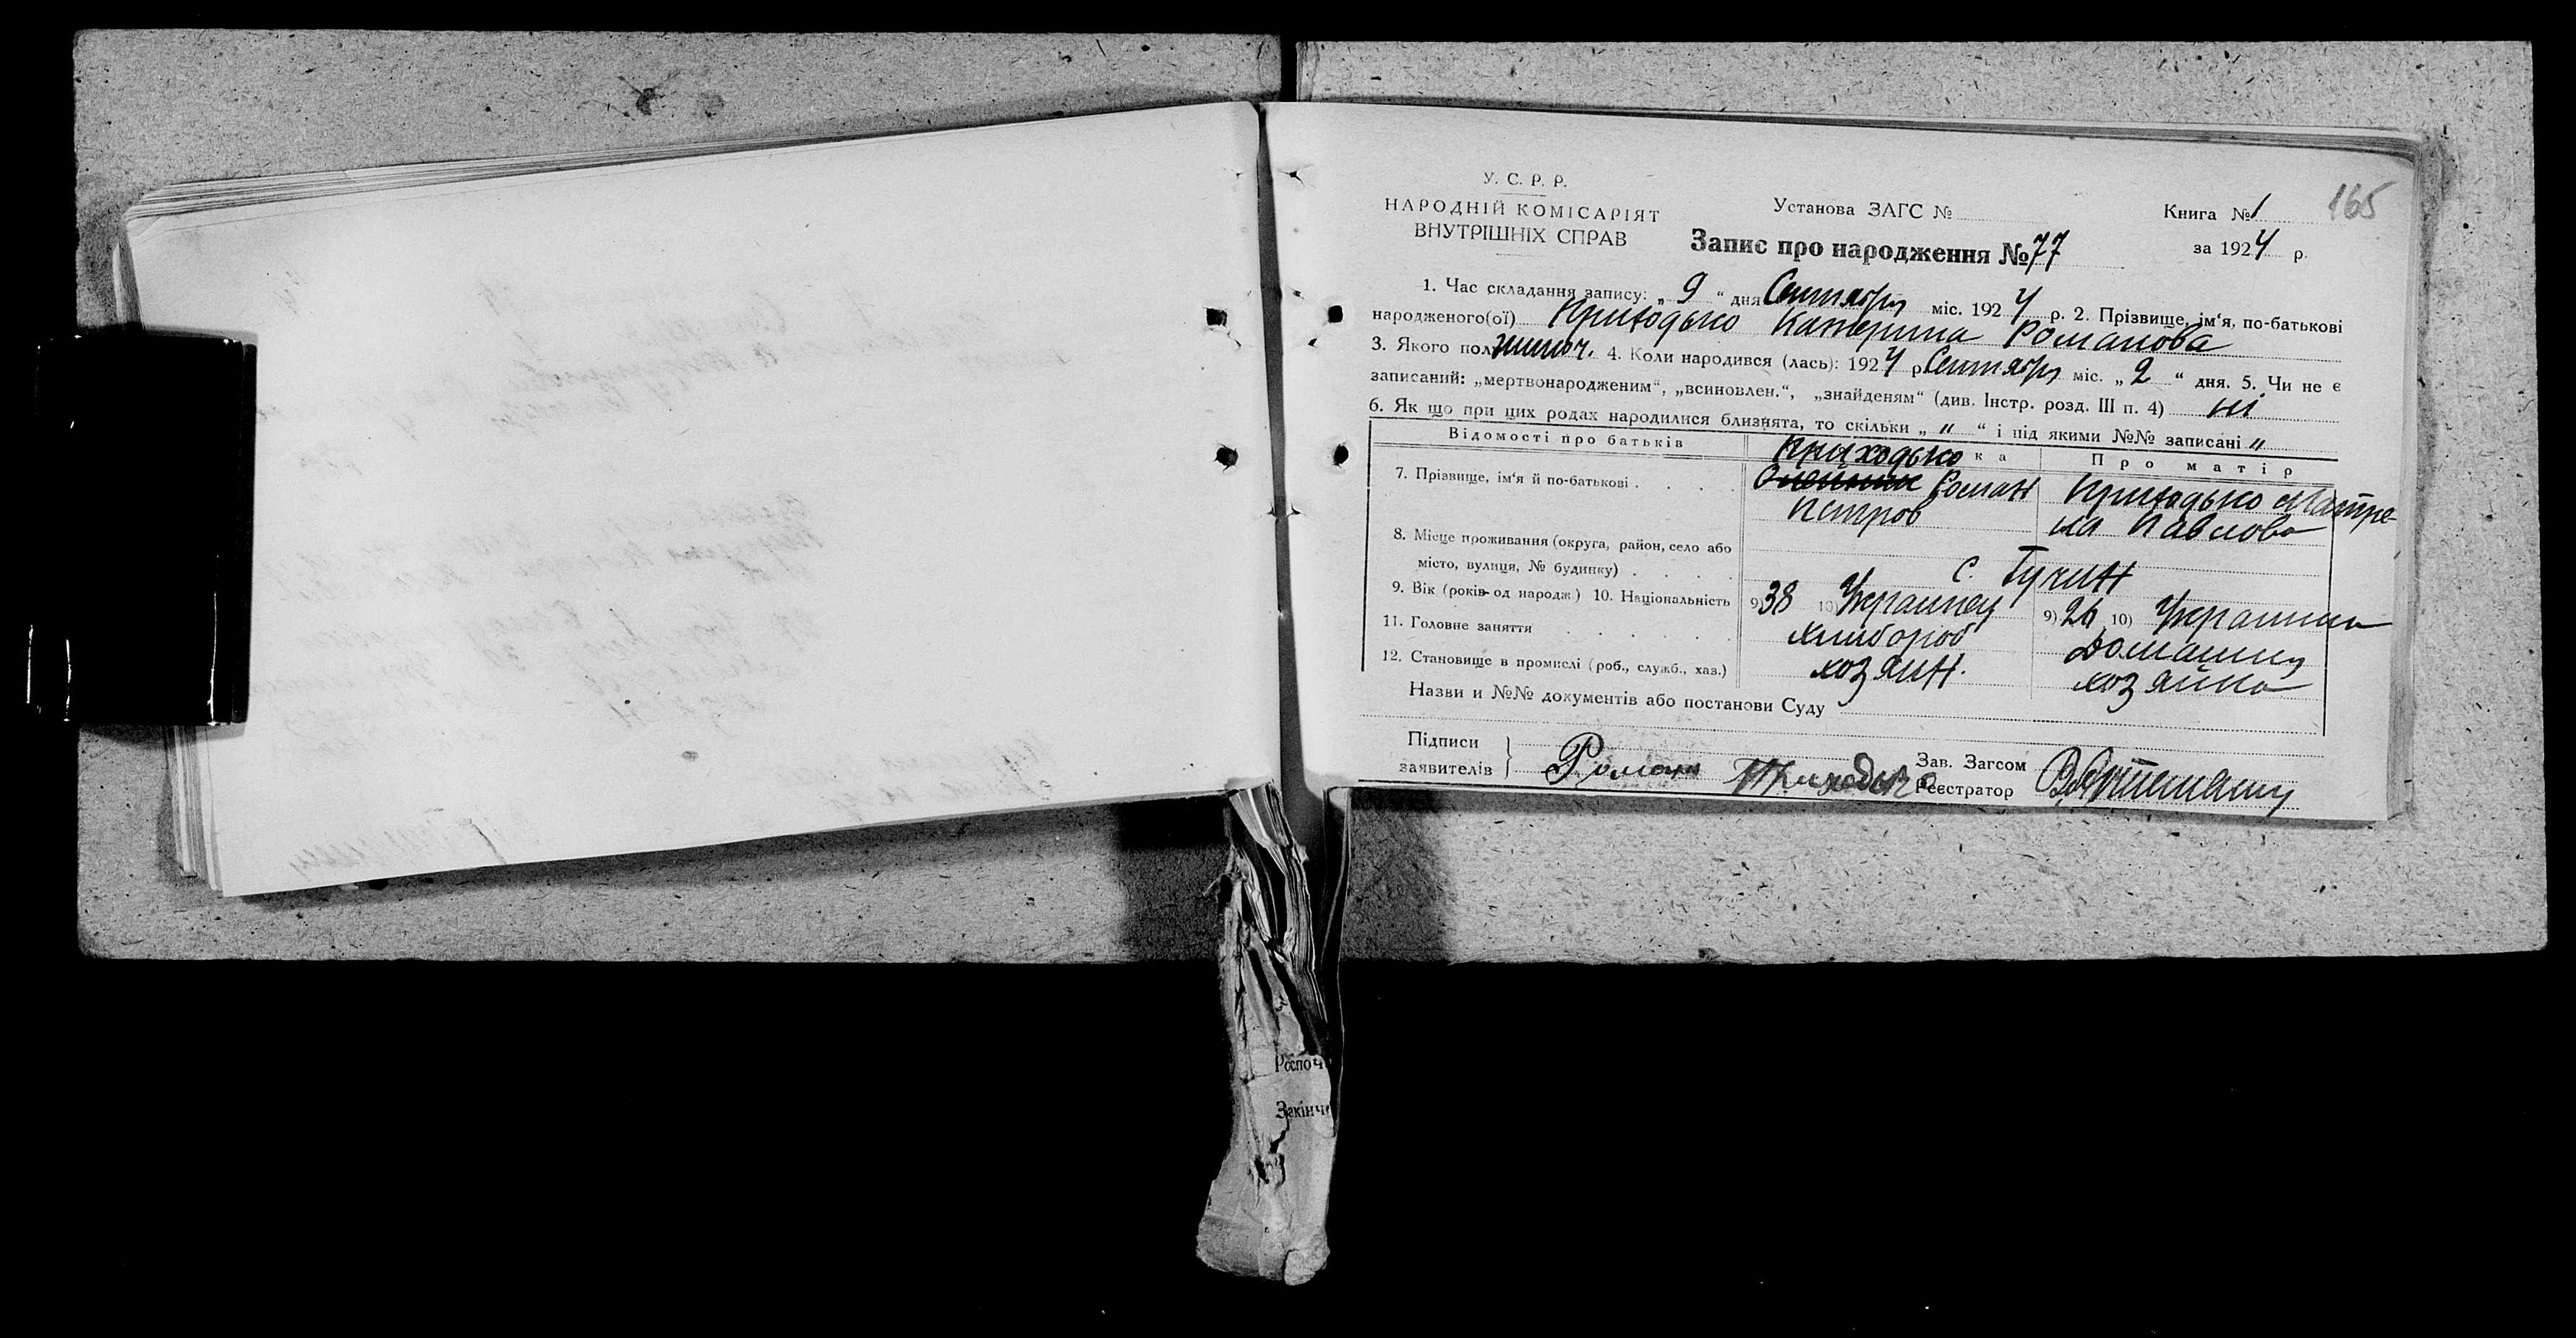 165
У. С. Р. Р.
НАРОДНІЙ КОМІСАРІЯТ
ВНУТРІШНІХ СПРАВ
Установа ЗАГС №
Книга № 1
за 1924 р.
Запис про народження № 77
1. Час складання запису: „ 9 “ дня Сентября міс. 1924 р. 2. Прізвище, ім‘я, по-батькові
народженого(ої) Приходько Катерина Романова
3. Якого пол жиноч. 4. Коли народився (лась): 1924 р Сентября міс. „ 2 “ дня. 5. Чи не є
записаний: „мертвонародженим“, „всиновлен.“, „знайденям“ (див. Інстр. розд. III п. 4) ні
6. Як що при цих родах народилися близнята, то скільки „ " “ і під якими №№ записані "
Відомості про батьків Приходько ка Про матір
7. Прізвище, ім‘я й по-батькові . . . . Роман Приходько Матре-
Петров на Павлова
8. Місце проживання (округа, район, село або
місто, вулиця, № будинку) . . . . с. Гучин
9. Вік (років од народж.) 10. Національність 9) 38 10) Украинец 9) 26 10) Украинка
11. Головне заняття . . . . . хлибороб Домашня
12. Становище в промислі (роб., служб., хаз.) хозяин. хозяйка
Назви и №№ документів або постанови Суду
Підписи
заявителів } Роман Приходько
Зав. Загсом
Реєстратор
Роспоч
Закінч